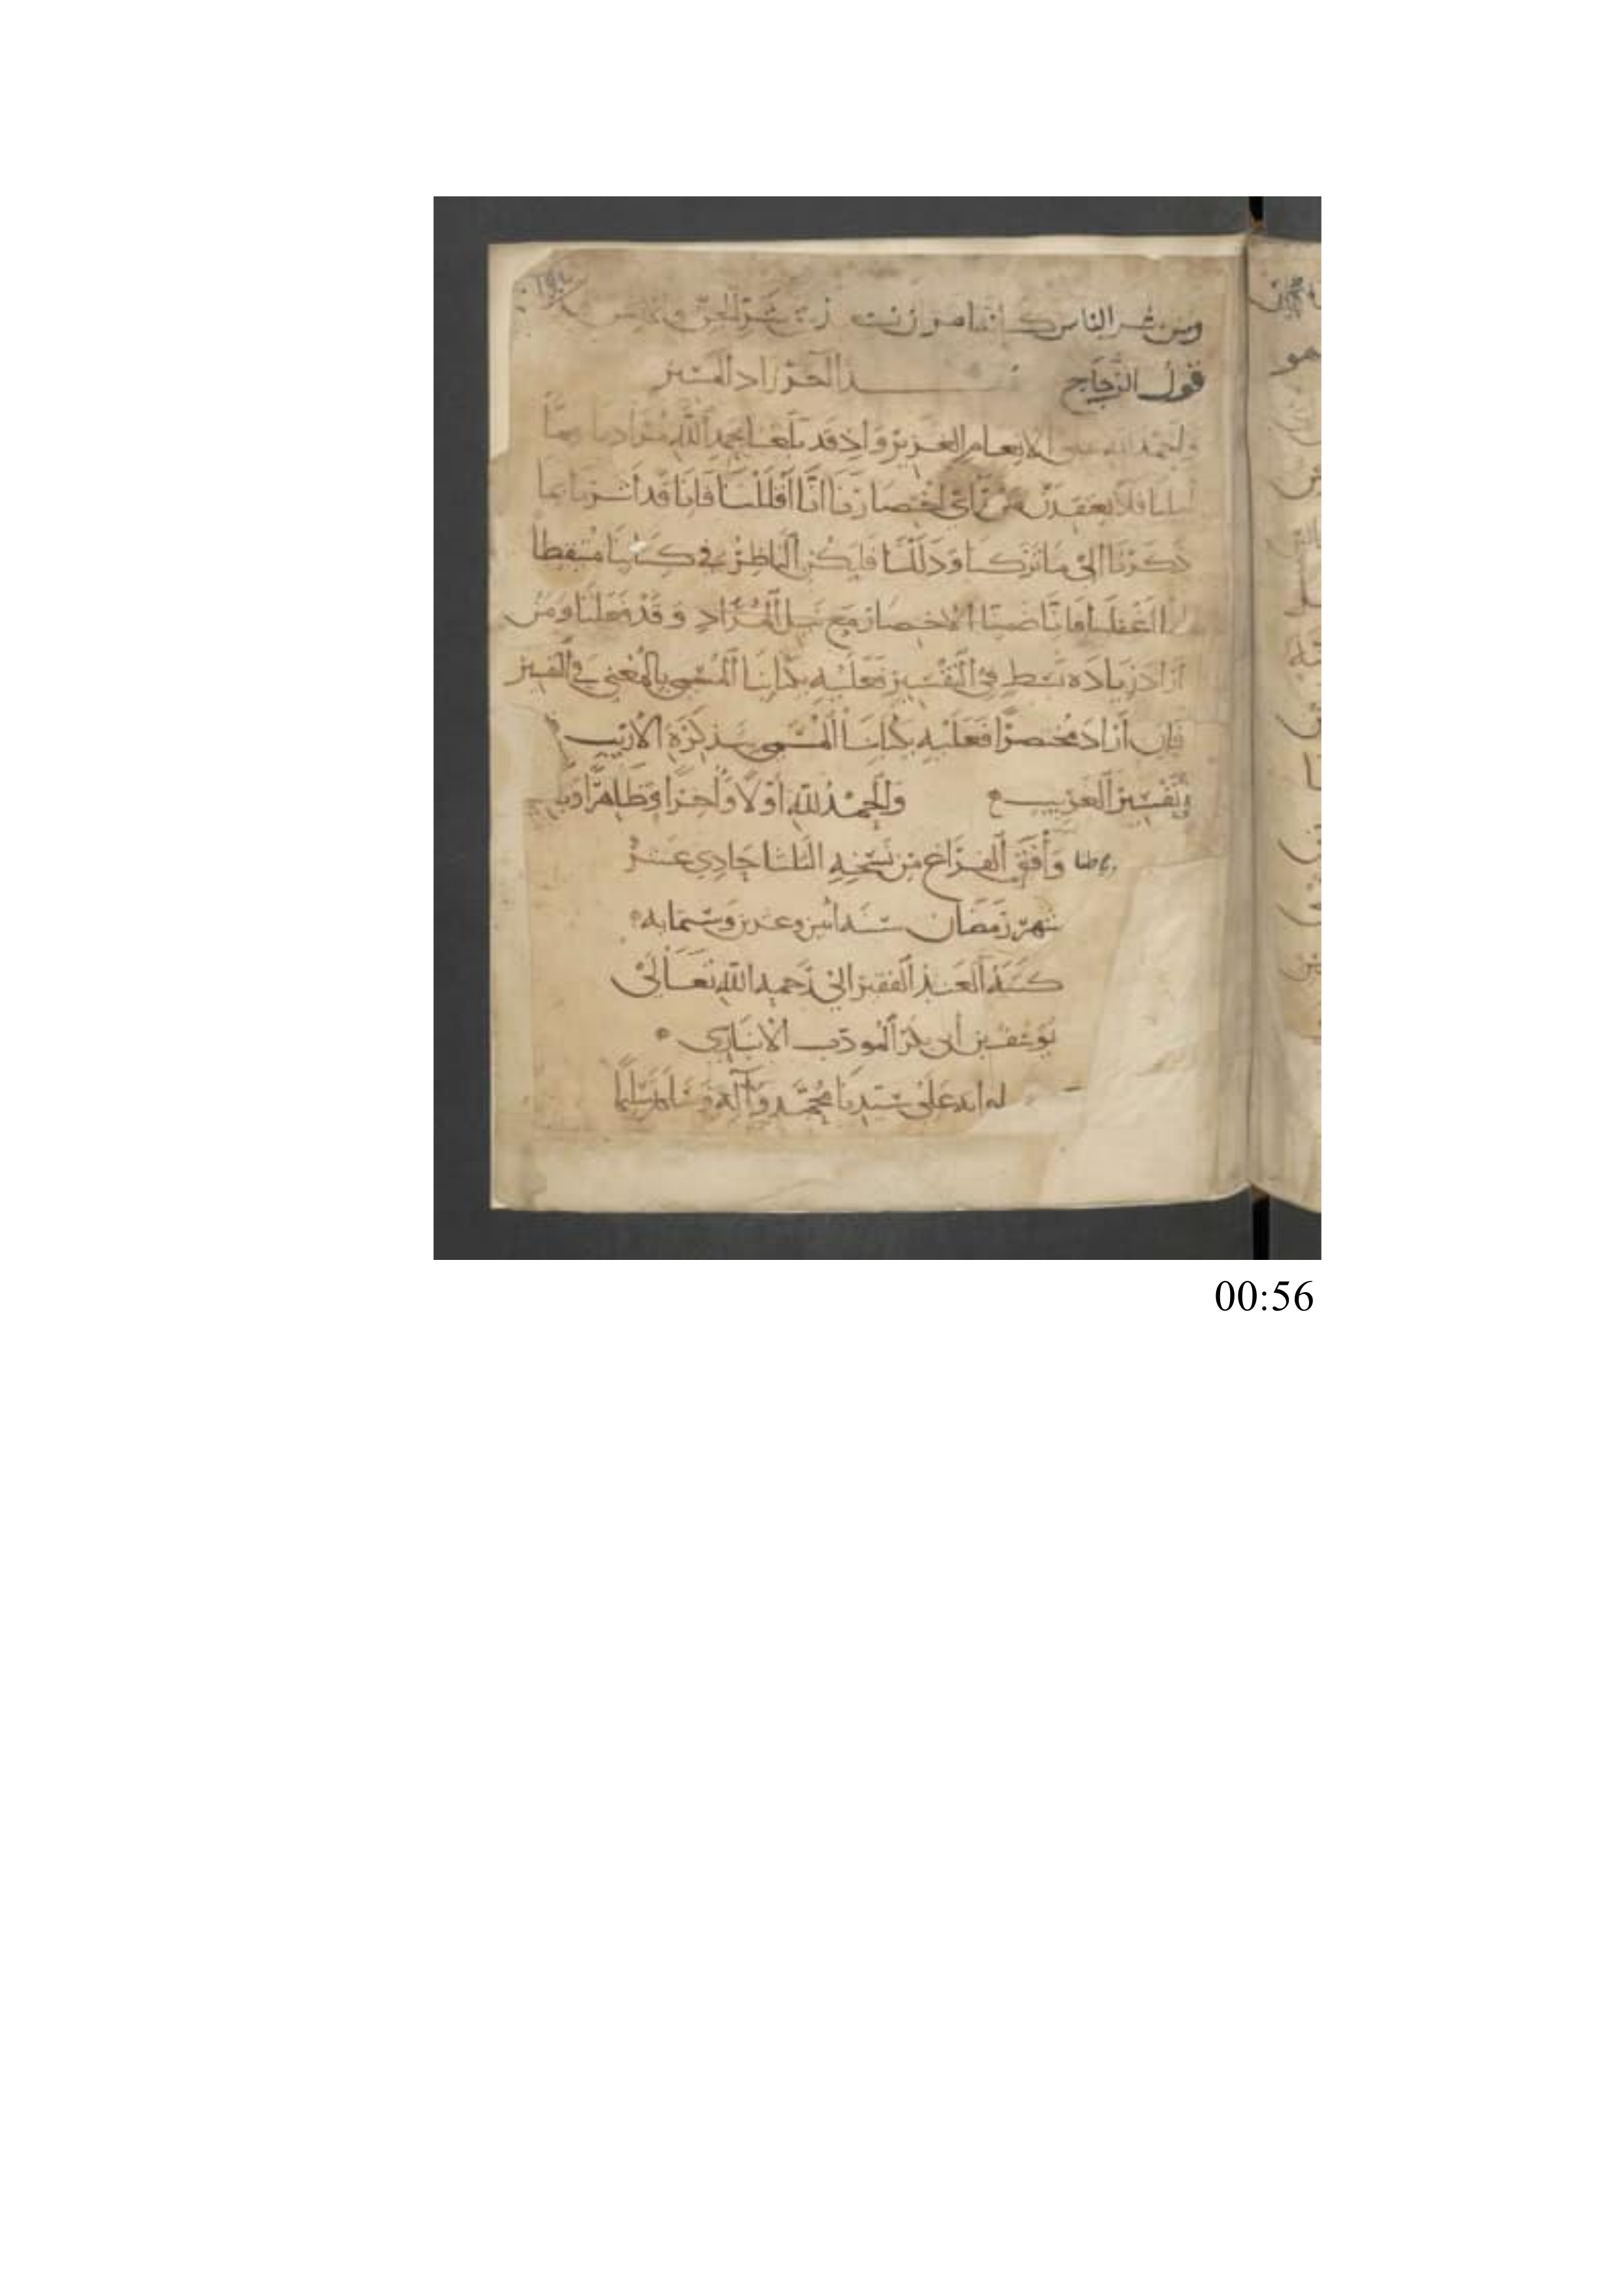 ومن شر الناس كأنه أمر أن يستعيذ من شر الجن والإنس
قول الزجاج آخر زاد المسير
والحمد لله على الانعام الغزير واذ قد بلغنا بحمد الله مرادنا مما
أملنا فلا يعتقدن من رأى اختصارنا انا أقللنا فانا قد أشرنا بما
ذكرنا الى ما تركنا ودللنا فليكن الناظر في كتابنا متيقظا
لما أغفلنا فانا ضمنا الاختصار مع نيل المراد وقد فعلنا ومن
أراد زيادة بسط في التفسير فعليه بكتابنا المسمى بالمغني في التفسير
فان أراد مختصرا فعليه بكتابنا المسمى بتذكرة الأريب
في تفسير الغريب والحمد لله أولا وآخرا وظاهرا
وباطنا وافق الفراغ من نسخه الثلثا حادي عشر
شهر رمضان سنة اثنين وعشرين وستمايه
كتبه العبد الفقير الى رحمة الله تعالى
يوسف بن أبي بكر المودب الانباري
الله على سيدنا محمد وآله وسلم تسليما
00:56